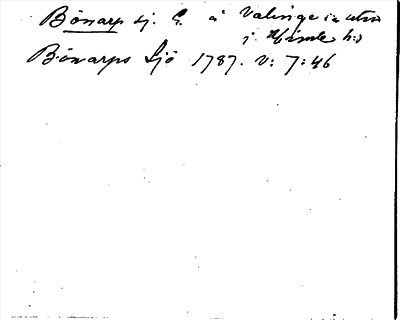 Bönarp sj. G. å Valinge
i Himle h:d
Bönarps Sjö 1787. V: 7:46